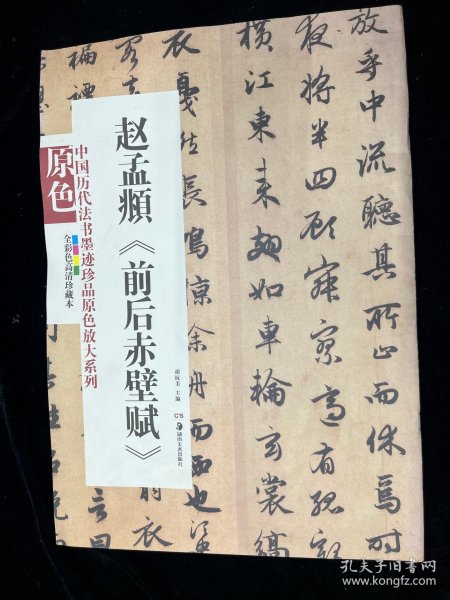 放乎中流聽其所止而休焉时
夜將半四顧寂寥適有孤
橫江東来翅如車輪玄裳縞
衣戛然長鳴掠余舟而西也
赵孟頫《前后赤壁赋》
胡抗美 主编
湖南美术出版社
中国历代法书墨迹珍品原色放大系列
原色
全彩色高清珍藏本
孔夫子旧书网
www.kongfz.com